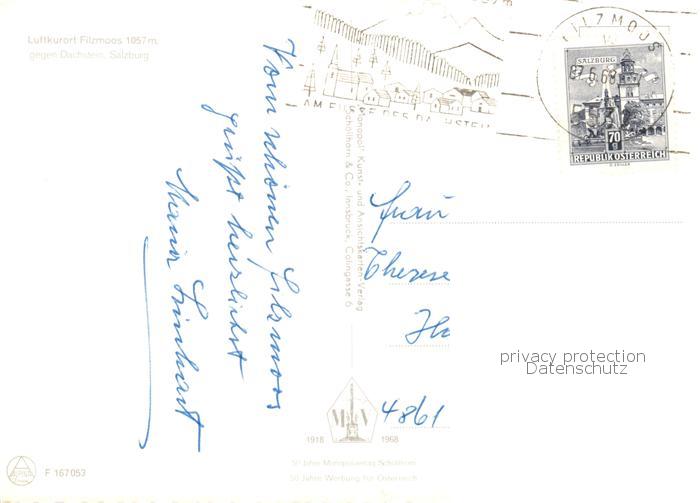 Luftkurort Filzmoos 1057 m,
gegen Dachstein, Salzburg
Vom schönen Filzmoos
grüßt herzlichst
Maria
AM FUSSE DES DACHSTEIN
FILZMOOS
SALZBURG
70 g
REPUBLIK ÖSTERREICH
Monopol: Kunst- und Ansichtskarten-Verlag
Schöllhorn & Co., Innsbruck, Colingasse 6
Frau
Therese
4861
privacy protection
Datenschutz
1918 1968
50 Jahre Monopolverlag Schöllhorn
50 Jahre Werbung für Österreich
F 167053